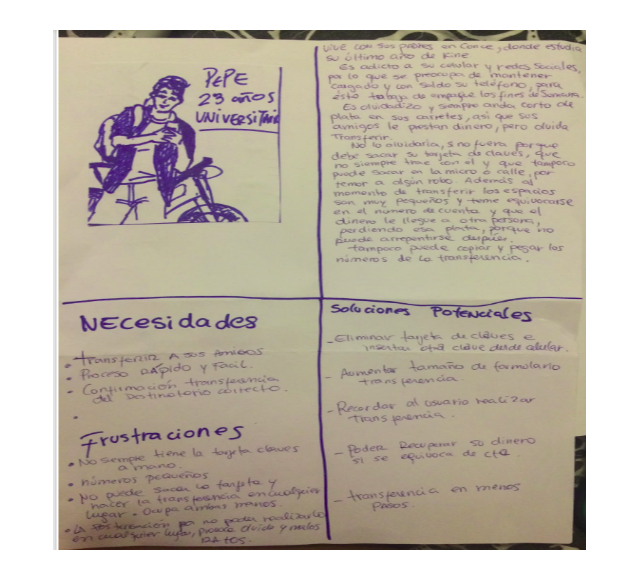 PEPE
23 años
UNIVERSITARIO
Vive con sus padres en Conce, donde estudia
su último año de Kine
Es adicto a su celular y redes sociales,
por lo que se preocupa de mantener
cargado y con saldo su teléfono, para
esto trabaja de empaque los fines de semana.
Es olvidadizo y siempre anda corto de
plata en sus carretes, así que sus
amigos le prestan dinero, pero olvida
Transferir.
No lo olvidaría, si no fuera porque
debe sacar su tarjeta de claves, que
no siempre trae con el y que tampoco
puede sacar en la micro o calle, por
temor a algún robo. Además al
momento de transferir los espacios
son muy pequeños y teme equivocarse
en el número de cuenta y que el
dinero le llegue a otra persona,
perdiendo esa plata, porque no
puede arrepentirse después.
tampoco puede copiar y pegar los
números de la transferencia.
NECesidades
• Transferir A sus Amigos
• Proceso RÁpido y Facil.
• Confirmación transferencia
del Destinatario correcto.
Frustraciones
• No siempre tiene la tarjeta claves
a mano.
• números pequeños
• NO puede sacar la tarjeta y
hacer la transferencia en cualquier
lugar. Ocupa ambas manos.
en cualquier lugar, puede olvido y
DATOS.
Soluciones Potenciales
- Eliminar tarjeta de claves e
insertar otra clave desde celular.
- Aumentar tamaño de formulario
transferencia.
- Recordar al usuario realizar
Transferencia.
- Poder Recuperar su dinero
si se equivoca de cta
- transferencia en menos
pasos.